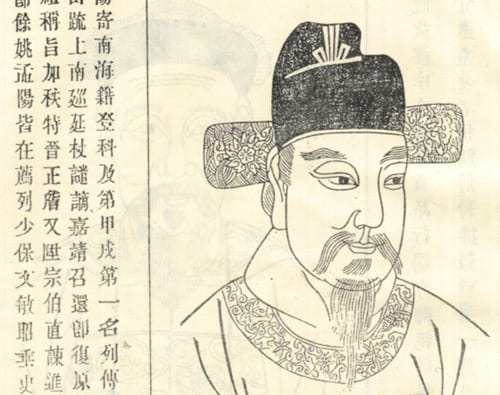 寄南海籍登科及第甲戌第一名列傳
疏上南廵廷杖譴謫嘉靖召還卽復原
稱旨加秩特晉正詹又陞宗伯直諫進
餘姚孟陽皆在薦列少保文敏昭垂史